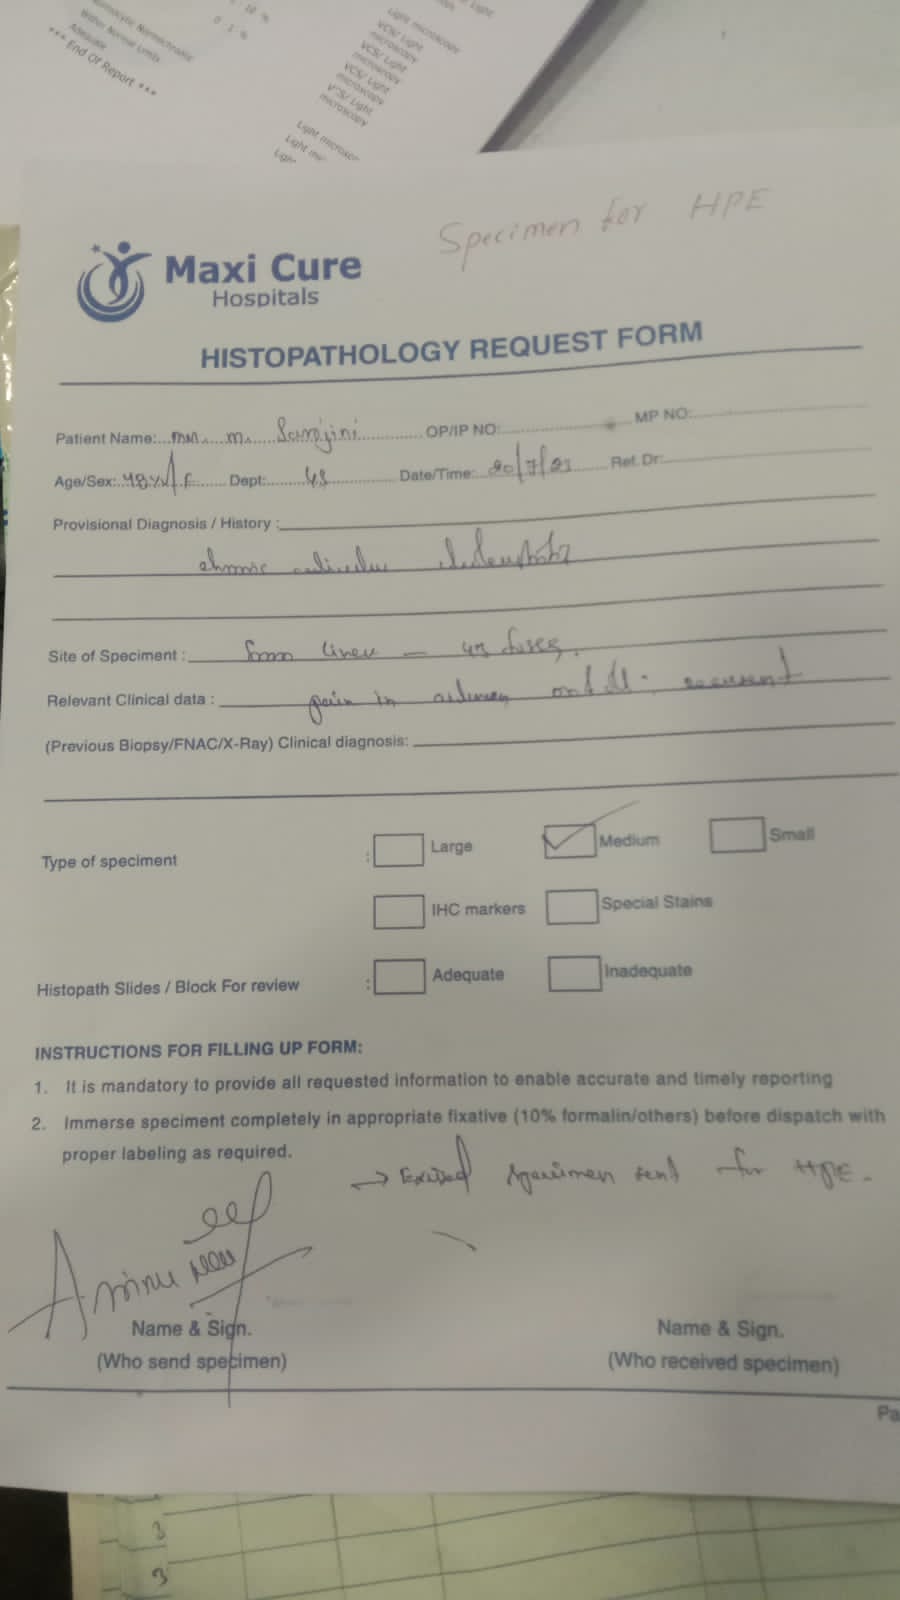 Normocytic Normochromic
Within Normal Limits
Adequate
*** End Of Report ***
- 10 %
0 - 1 %
Light
Light microscopy
VCS/ Light
microscopy
VCS/ Light
microscopy
VCS/ Light
microscopy
VCS/ Light
microscopy
Light microscop
Light mic
Light
Specimen for HPE
Maxi Cure
Hospitals
HISTOPATHOLOGY REQUEST FORM
Patient Name: m. OP/IP NO: MP NO:
Age/Sex: 48 F Dept: Date/Time: Ref. Dr:
Provisional Diagnosis / History :
chronic
Site of Specimen : from
Relevant Clinical data : pain in recurrent
(Previous Biopsy/FNAC/X-Ray) Clinical diagnosis:
Type of speciment : Large Medium Small
IHC markers Special Stains
Histopath Slides / Block For review : Adequate Inadequate
INSTRUCTIONS FOR FILLING UP FORM:
1. It is mandatory to provide all requested information to enable accurate and timely reporting
2. Immerse speciment completely in appropriate fixative (10% formalin/others) before dispatch with
proper labeling as required.
→ Excised specimen sent for HPE.
Name & Sign. Name & Sign.
(Who send specimen) (Who received specimen)
Pa
3
3